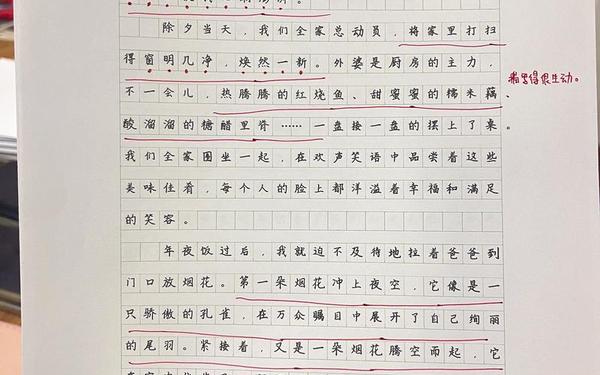 除夕当天，我们全家总动员，将家里打扫
得窗明几净，焕然一新。外婆是厨房的主力，
描写得很生动。
不一会儿，热腾腾的红烧鱼、甜蜜蜜的糯米藕、
酸溜溜的糖醋里脊……一盘接一盘的摆上了桌。
我们全家围坐一起，在欢声笑语中品尝着这些
美味佳肴，每个人的脸上都洋溢着幸福和满足
的笑容。
年夜饭过后，我就迫不及待地拉着爸爸到
门口放烟花。第一朵烟花冲上夜空，它像是一
只骄傲的孔雀，在万众瞩目中展开了自己绚丽
的尾羽。紧接着，又是一朵烟花腾空而起，它